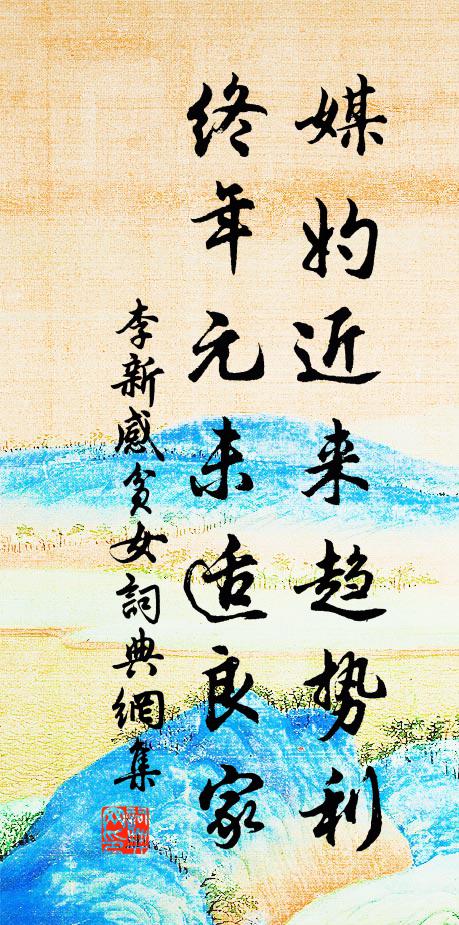 媒妁近来趋势利
终年元未适良家
李新感贫女詞典網集